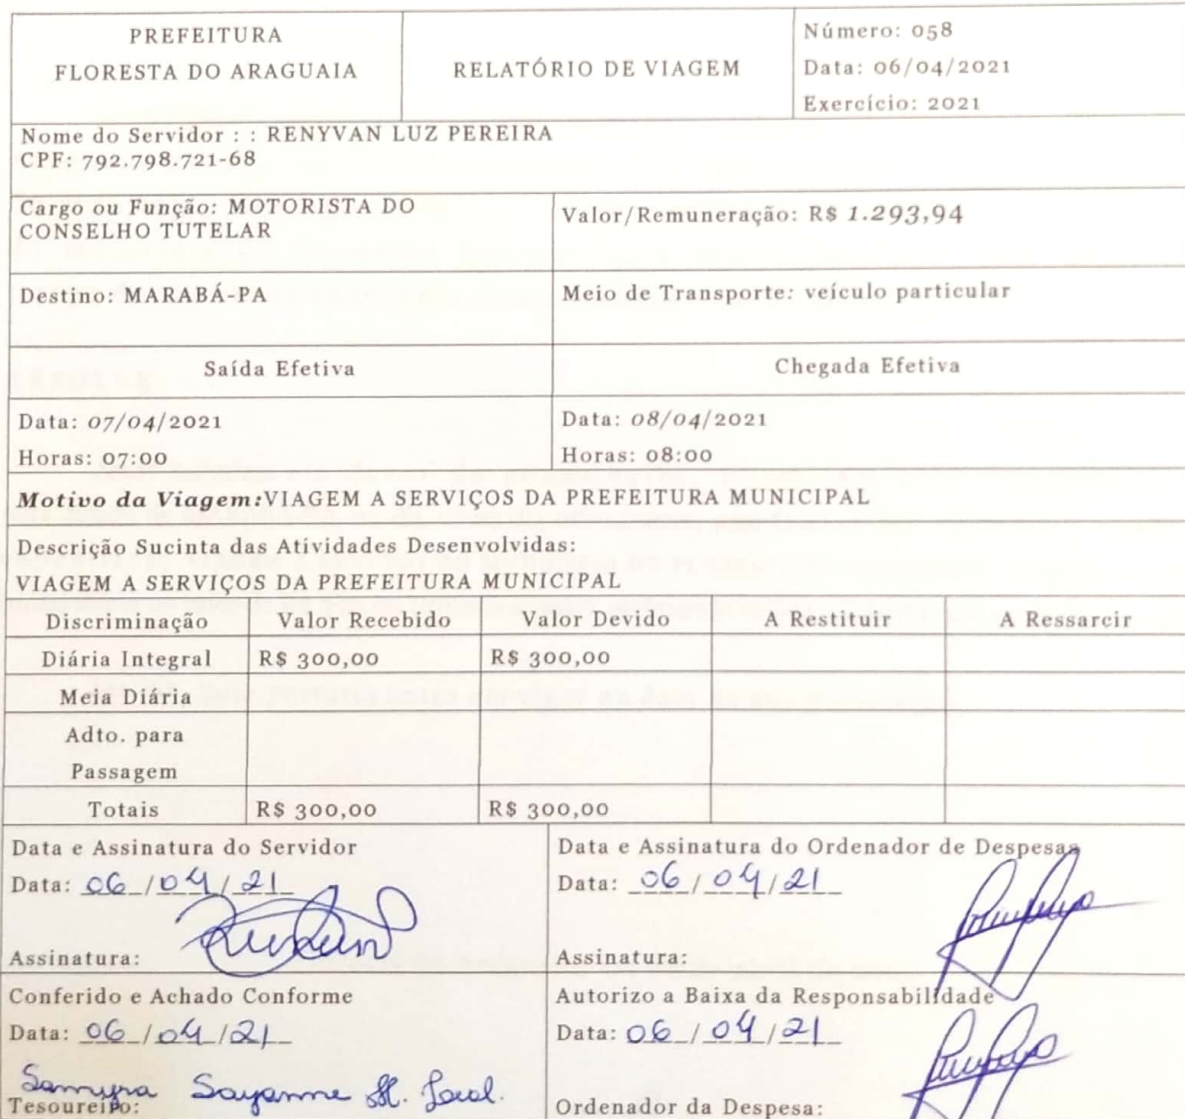 PREFEITURA
FLORESTA DO ARAGUAIA
RELATÓRIO DE VIAGEM
Número: 058
Data: 06/04/2021
Exercício: 2021
Nome do Servidor : : RENYVAN LUZ PEREIRA
CPF: 792.798.721-68
Cargo ou Função: MOTORISTA DO
CONSELHO TUTELAR
Valor/Remuneração: R$ 1.293,94
Destino: MARABÁ-PA
Meio de Transporte: veículo particular
Saída Efetiva
Chegada Efetiva
Data: 07/04/2021
Horas: 07:00
Data: 08/04/2021
Horas: 08:00
Motivo da Viagem:VIAGEM A SERVIÇOS DA PREFEITURA MUNICIPAL
Descrição Sucinta das Atividades Desenvolvidas:
VIAGEM A SERVIÇOS DA PREFEITURA MUNICIPAL
Discriminação Valor Recebido Valor Devido A Restituir A Ressarcir
Diária Integral R$ 300,00 R$ 300,00
Meia Diária
Adto. para
Passagem
Totais R$ 300,00 R$ 300,00
Data e Assinatura do Servidor
Data: 06/04/21
Assinatura:
Data e Assinatura do Ordenador de Despesas
Data: 06/04/21
Assinatura:
Conferido e Achado Conforme
Data: 06/04/21
Tesoureiro:
Autorizo a Baixa da Responsabilidade
Data: 06/04/21
Ordenador da Despesa: